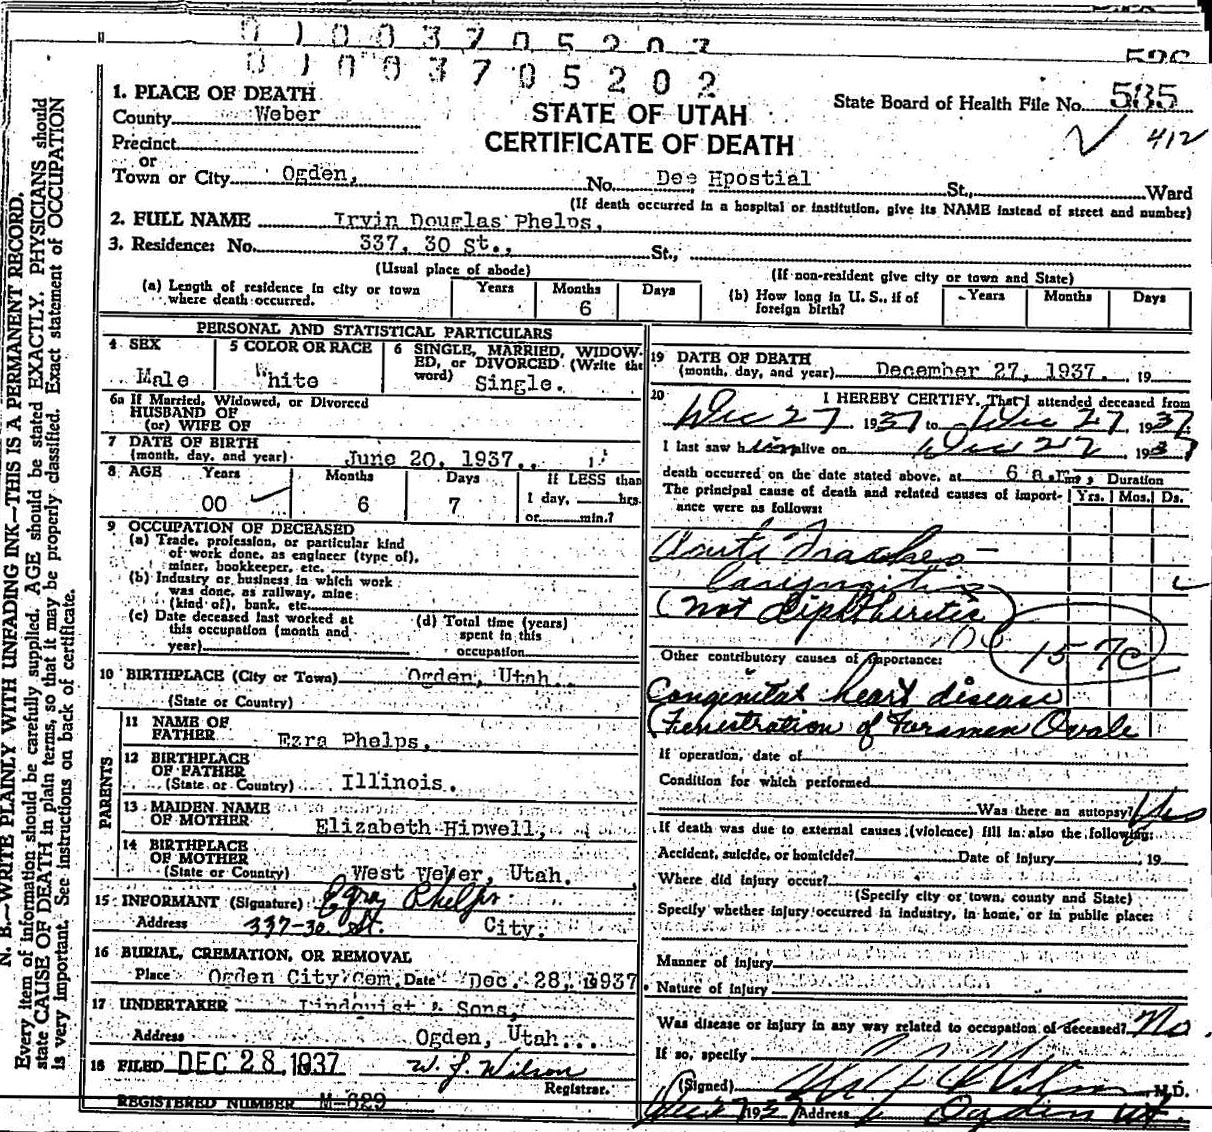 0100370520?
526
01003705202
1. PLACE OF DEATH
County Weber
STATE OF UTAH
CERTIFICATE OF DEATH
State Board of Health File No. 585
✓ 412
Precinct
or
Town or City Ogden, No. Dee Hpostial St., Ward
(If death occurred in a hospital or institution, give its NAME instead of street and number)
2. FULL NAME Irvin Douglas Phelps,
3. Residence: No. 337, 30 St., St.,
(Usual place of abode) (If non-resident give city or town and State)
(a) Length of residence in city or town where death occurred. Years Months 6 Days
(b) How long in U. S., if of foreign birth? Years Months Days
PERSONAL AND STATISTICAL PARTICULARS
4 SEX Male
5 COLOR OR RACE White
6 SINGLE, MARRIED, WIDOWED, or DIVORCED (Write the word) Single.
6a If Married, Widowed, or Divorced
HUSBAND OF
(or) WIFE OF
7 DATE OF BIRTH
(month, day, and year) June 20, 1937.
8 AGE Years 00 Months 6 Days 7 If LESS than 1 day, hrs. or min.?
9 OCCUPATION OF DECEASED
(a) Trade, profession, or particular kind of work done, as engineer (type of), miner, bookkeeper, etc.
(b) Industry or business in which work was done, as railway, mine (kind of), bank, etc.
(c) Date deceased last worked at this occupation (month and year)
(d) Total time (years) spent in this occupation
10 BIRTHPLACE (City or Town) Ogden, Utah.
(State or Country)
PARENTS
11 NAME OF FATHER Ezra Phelps,
12 BIRTHPLACE OF FATHER
(State or Country) Illinois.
13 MAIDEN NAME OF MOTHER Elizabeth Hipwell,
14 BIRTHPLACE OF MOTHER
(State or Country) West Weber, Utah.
15 INFORMANT (Signature) Ezra Phelps
Address 337-30 St. City.
16 BURIAL, CREMATION, OR REMOVAL
Place Ogden City Cem. Date Dec. 28, 1937
17 UNDERTAKER Lindquist & Sons,
Address Ogden, Utah.
18 FILED DEC 28 1937 W. J. Wilson
Registrar.
REGISTERED NUMBER M-629
19 DATE OF DEATH
(month, day, and year) December 27, 1937. 19
20 I HEREBY CERTIFY, That I attended deceased from
Dec 27 1937 to Dec 27 1937.
I last saw him alive on Dec 27 1937
death occurred on the date stated above, at 6 a.m., Duration
The principal cause of death and related causes of importance were as follows: Yrs. Mos. Ds.
Acute Tracheo-
laryngitis
(not diphtheritic)
157c
Other contributory causes of importance:
Congenital heart disease
(Fenestration of Foramen Ovale
If operation, date of
Condition for which performed
Was there an autopsy? Yes
If death was due to external causes (violence) fill in also the following:
Accident, suicide, or homicide? Date of injury , 19
Where did injury occur?
(Specify city or town, county and State)
Specify whether injury occurred in industry, in home, or in public place:
Manner of injury
Nature of injury
Was disease or injury in any way related to occupation of deceased? No.
If so, specify
(Signed) M.D.
1937 Address Ogden Ut.
N. B.—WRITE PLAINLY WITH UNFADING INK—THIS IS A PERMANENT RECORD.
Every item of information should be carefully supplied. AGE should be stated EXACTLY. PHYSICIANS should
state CAUSE OF DEATH in plain terms, so that it may be properly classified. Exact statement of OCCUPATION
is very important. See instructions on back of certificate.